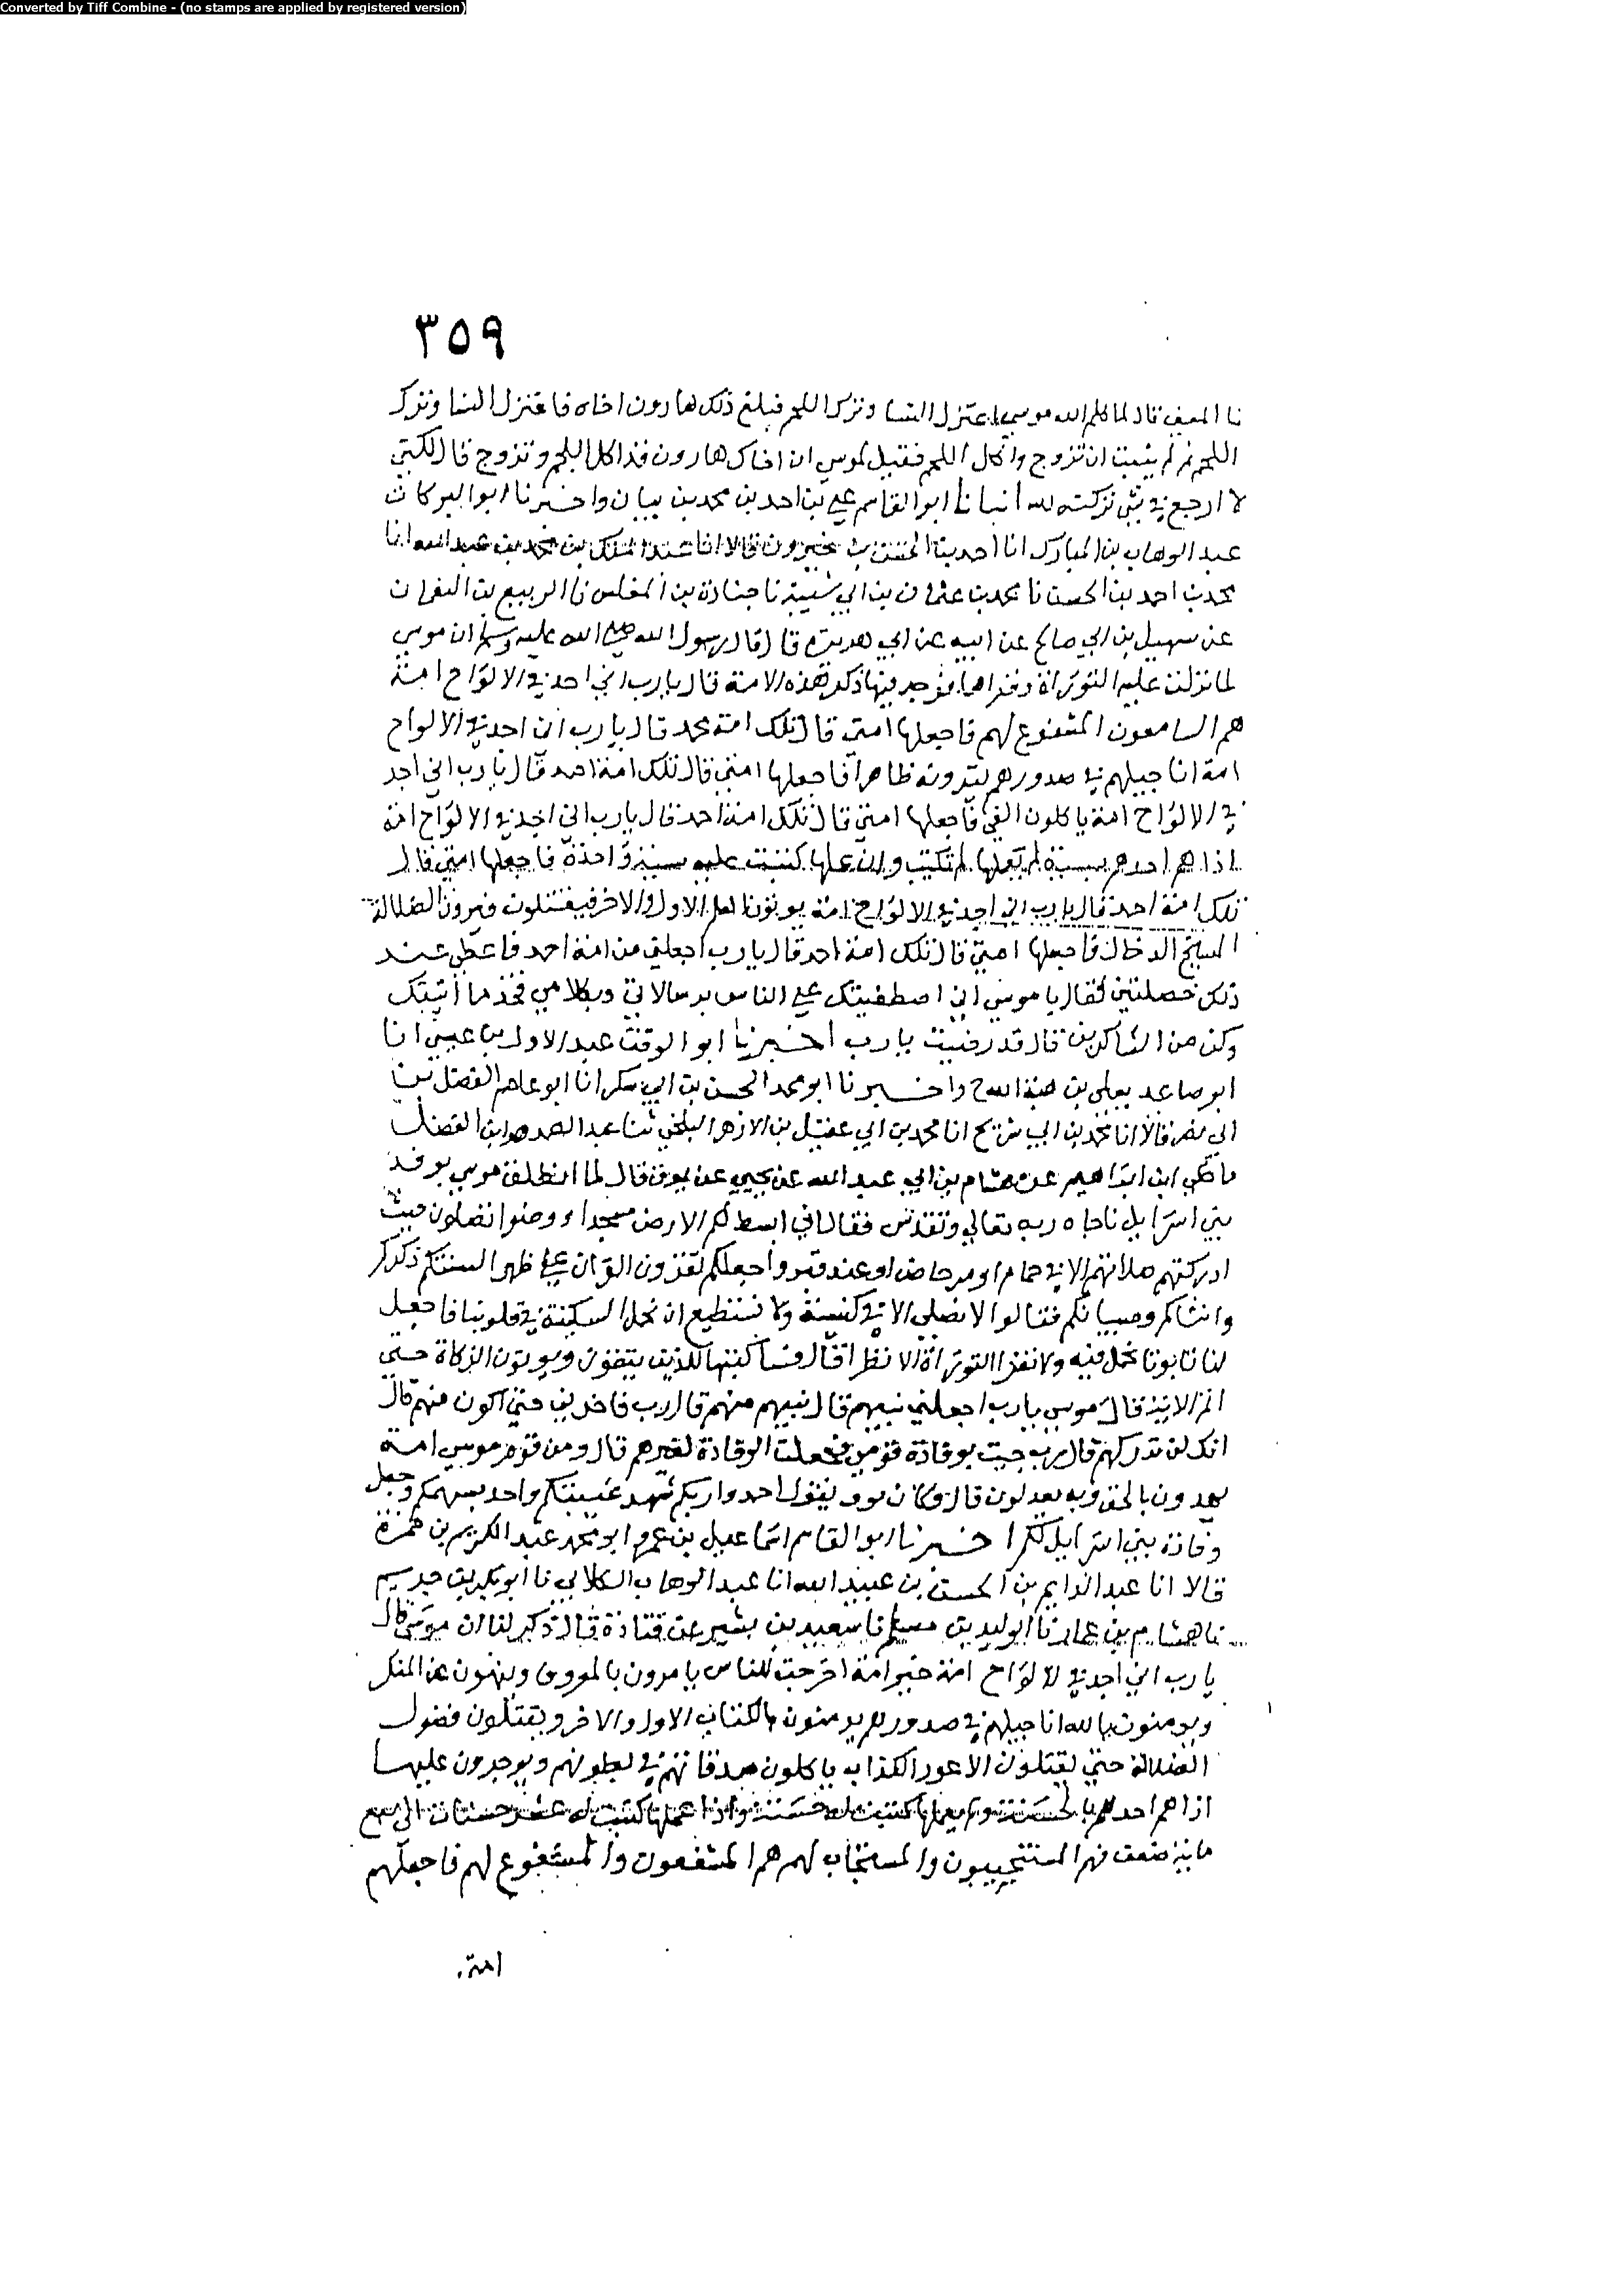 Converted by Tiff Combine - (no stamps are applied by registered version)
٣٥٩
نا المعيقال لما كلم الله موسى اعتزل النسا وترك اللحم فبلغ ذلك هارون اخاه فاعتزل النسا وترك
اللحم ثم لم يلبث ان تزوج واكل اللحم فقيل لموسى ان اخاك هارون قد اكل اللحم وتزوج قال لكني
لا ارجع في شي تركته لله انبانا ابو القاسم علي بن احمد بن محمد بن بيان واخبرنا ابو البركات
عبد الوهاب بن المبارك انا احمد بن الحسن بن خيرون قالا انا عبد الملك بن محمد بن عبد الله انا
محمد بن احمد بن الحسن نا محمد بن عثمان بن ابي شيبة نا جنادة بن المغلس نا الربيع بن النعمان
عن سهيل بن ابي صالح عن ابيه عن ابي هريرة قال قال رسول الله صلى الله عليه وسلم ان موسى
لما نزلت عليه التوراة وقراها فوجد فيها ذكر هذه الامة قال يا رب اني اجد في الالواح امة
هم السابقون المشفوع لهم فاجعلها امتي قال تلك امة محمد قال يا رب اني اجد في الالواح
امة اناجيلهم في صدورهم يقرونه ظاهرا فاجعلها امتي قال تلك امة احمد قال يا رب اني اجد
في الالواح امة ياكلون الفي فاجعلها امتي قال تلك امة احمد قال يا رب اني اجد في الالواح امة
اذا هم احدهم بسيئة لم يعملها لم تكتب وان عملها كتبت عليه سيئة واحدة فاجعلها امتي قال
تلك امة احمد قال يا رب اني اجد في الالواح امة يوتون العلم الاول والاخر فيقتلون قرون الضلالة
المسيح الدجال فاجعلها امتي قال تلك امة احمد قال يا رب اجعلني من امة احمد فاعطي عند
ذلك خصلتين فقال يا موسى اني اصطفيتك على الناس برسالاتي وبكلامي فخذ ما اتيتك
وكن من الشاكرين قال قد رضيت يا رب اخبرنا ابو الوقت عبد الاول بن عيسى انا
ابو صاعد يعلى بن هبة الله ح واخبرنا ابو محمد الحسن بن ابي بكر انا ابو عاصم الفضل بن
ابي قالا انا محمد بن ابي شريح انا محمد بن ابي عقيل بن الازهر البلخي ثنا عبد الصمد هو ابن الفضل
نا مكي ابن ابراهيم عن هشام بن ابي عبد الله عن يحيى عن نوف قال لما انطلق موسى بوفد
بني اسرايل ناجاه ربه تعالى وتقدس فقال اني ابسط لكم الارض مسجدا وتصلون حيث
ادركتم صلاتكم الا في حمام او مرحاض او عند قبر واجعلكم تقرون القران على ظهر السنتكم ذكركم
وانثاكم وصبيانكم فقالوا لا نصلي الا في كنيسة ولا نستطيع ان نحمل السكينة في قلوبنا فاجعل
لنا تابوتا نحمل فيه ولا نقرا التوراة الا نظرا قال فساكتبها للذين يتقون ويوتون الزكاة حتى
اتم الاية قال موسى يا رب اجعلني نبيهم قال نبيهم منهم قال رب فاخرني حتى اكون منهم قال
انك لن تدركهم قال رب جيت بوفادة قومي فجعلت الوفادة لغيرهم قال ومن قوم موسى امة
يهدون بالحق وبه يعدلون قال وكان نوف يقول احمدوا ربكم شهد غيبتكم واخذ بسهمكم وجعل
وفادة بني اسرايل لكم اخبرنا ابو القاسم اسماعيل بن وابو محمد عبد الكريم بن حمزة
قالا انا عبد الدايم بن الحسن بن عبيد الله انا عبد الوهاب الكلابي نا ابو بكر بن خريم
نا هشام بن عمار نا الوليد بن مسلم نا سعيد بن بشير عن قتادة قال ذكر لنا ان موسى قال
يا رب اني اجد في الالواح امة خير امة اخرجت للناس يامرون بالمعروف وينهون عن المنكر
ويومنون بالله اناجيلهم في صدورهم يومنون بالكتاب الاول والاخر ويقتلون فضول
الضلالة حتى يقتلون الاعور الكذاب ياكلون صدقاتهم في بطونهم ويوجرون عليها
اذا هم احدهم بالحسنة ولم يعملها كتبت له حسنة واذا عملها كتبت له عشر حسنات الى سبع
ماية ضعف فهم المستجيبون والمستجاب لهم هم المشفعون والمشفوع لهم فاجعلهم
امتي